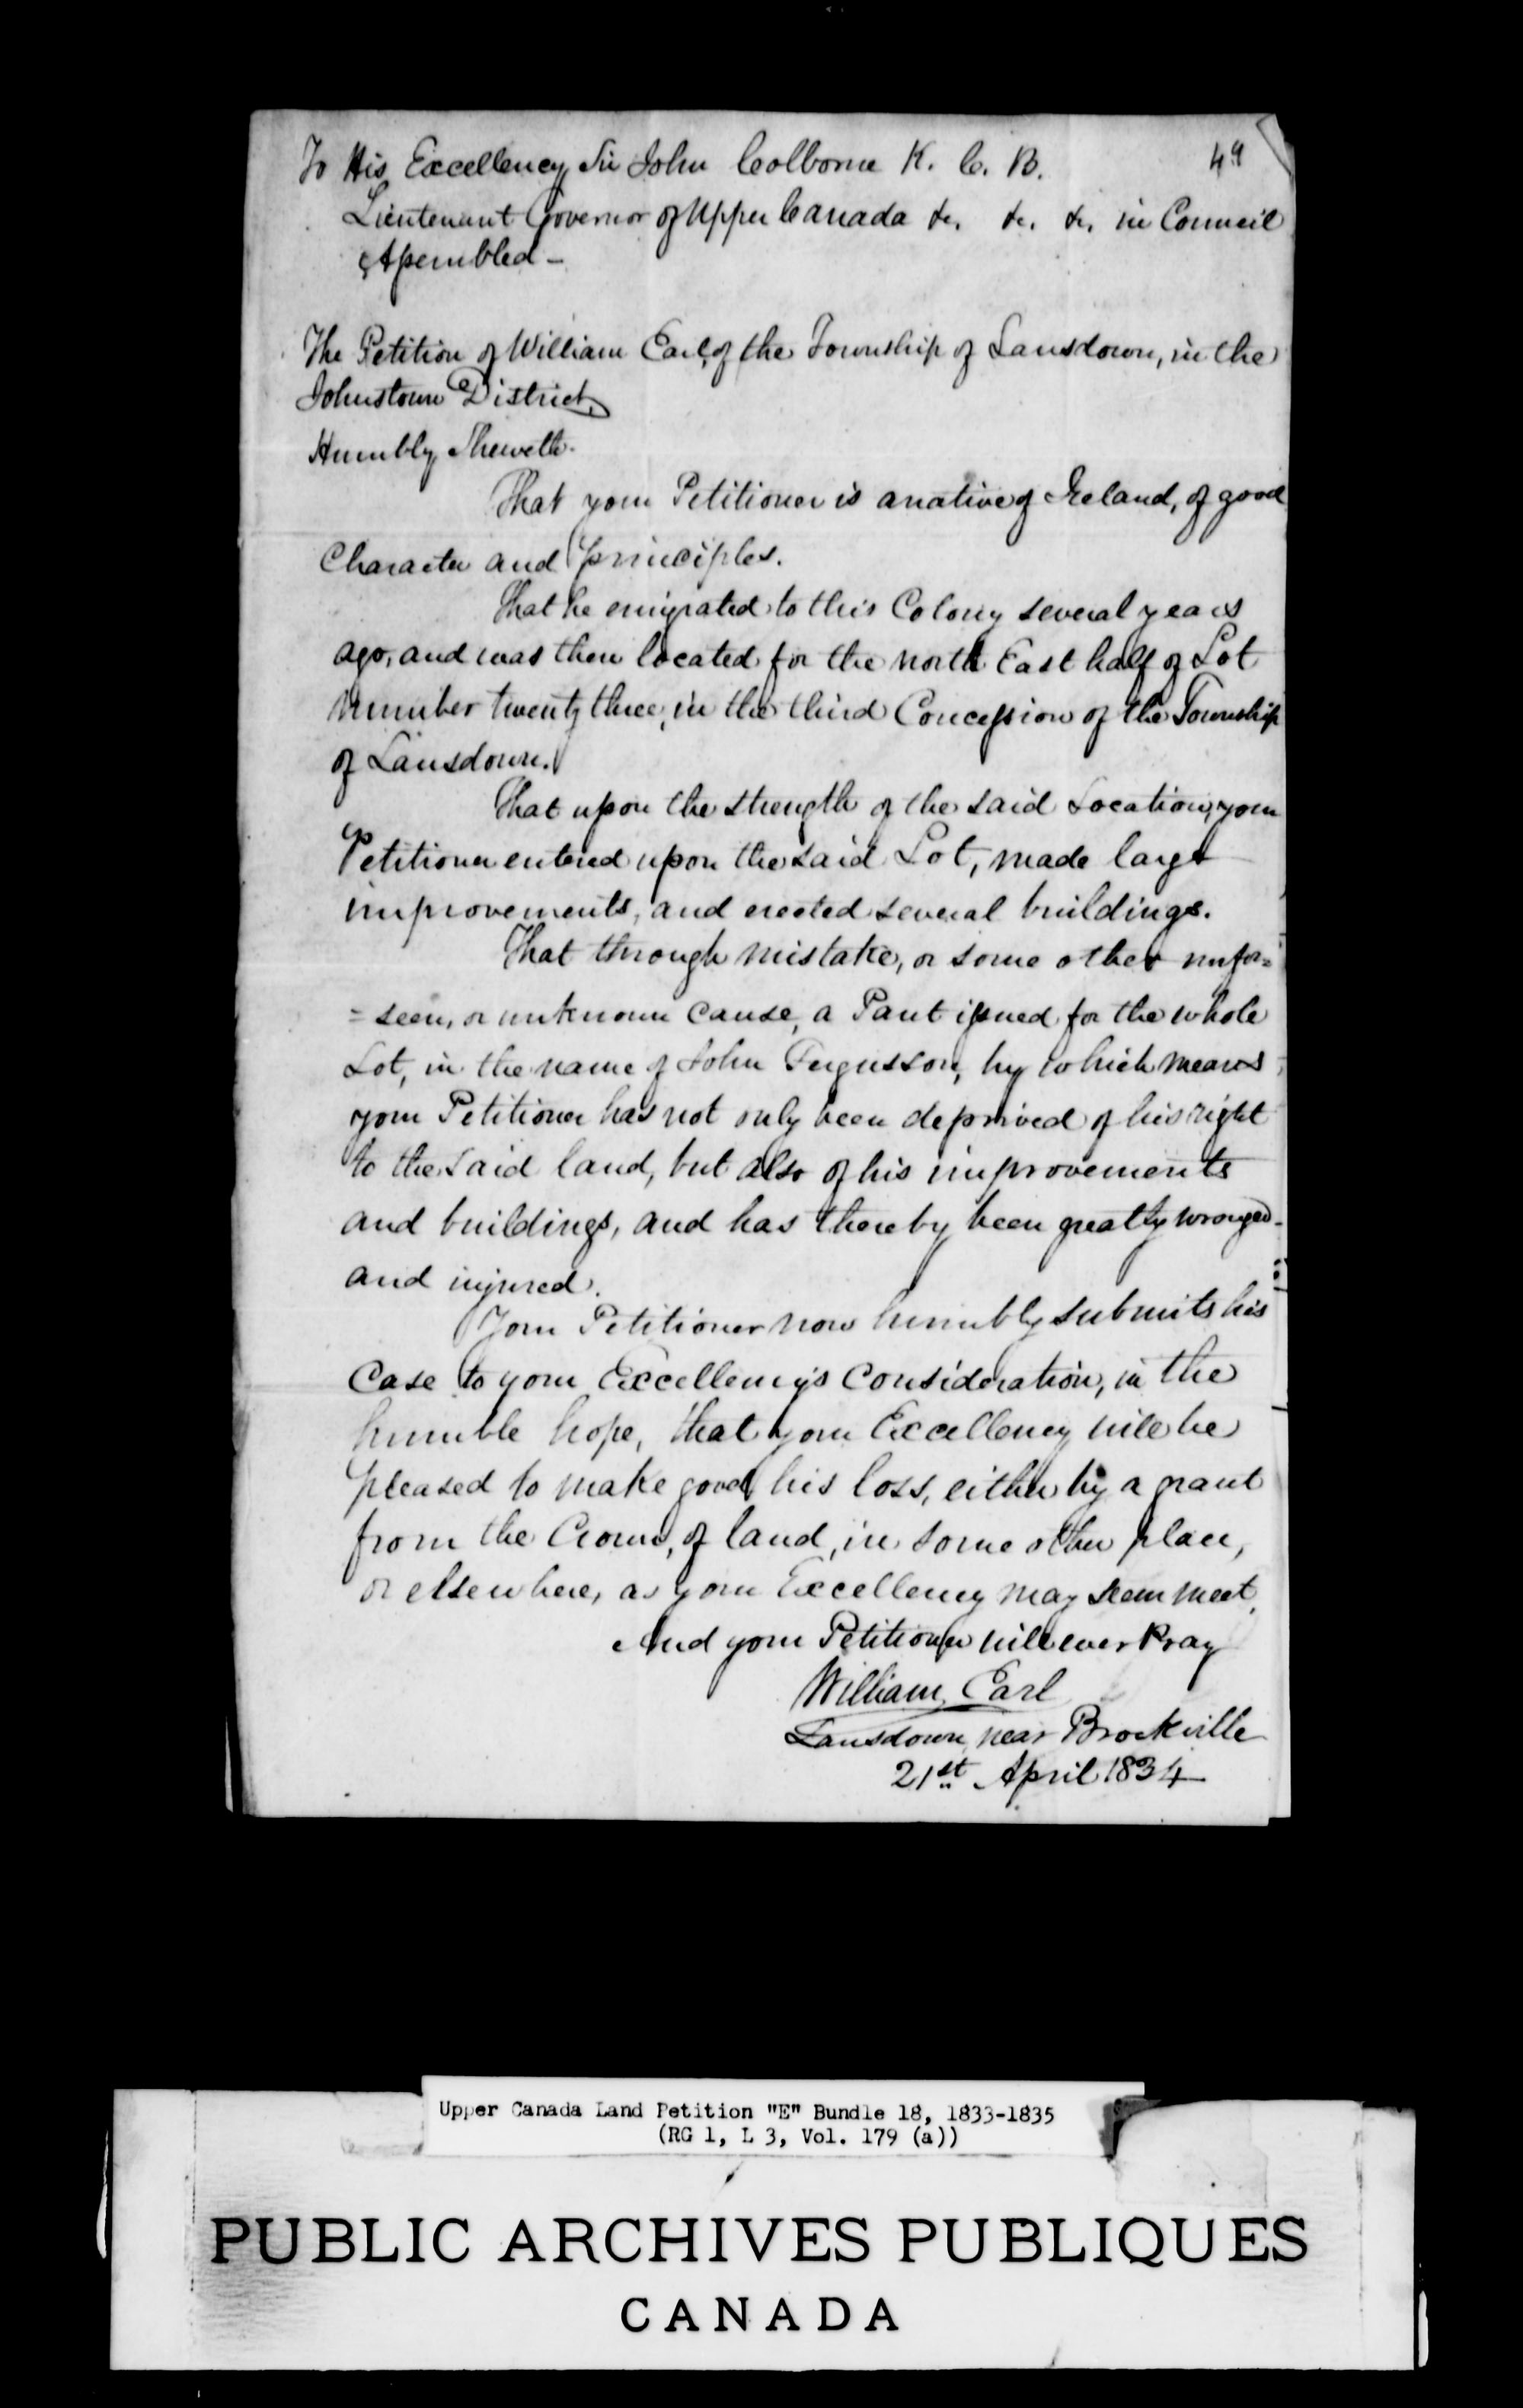 49
To His Excellency Sir John Colborne K. C. B.
Lieutenant Governor of Upper Canada &c. &c. &c. in Council
Assembled -
The Petition of William Earl, of the Township of Lansdown, in the
Johnstown District,
Humbly Sheweth.
That your Petitioner is a native of Ireland, of good
Character and principles.
That he emigrated to this Colony several years
ago, and was then located for the north East half of Lot
number twenty three, in the third Concession of the Township
of Lansdown.
That upon the strength of the said Location, your
Petitioner entered upon the said Lot, made large
improvements, and erected several buildings.
That through mistake, or some other unfor=
= seen, or unknown cause, a Pant issued for the whole
Lot, in the name of John Fergusson, by which means
your Petitioner has not only been deprived of his right
to the said land, but also of his improvements
and buildings, and has thereby been greatly wronged
and injured.
Your Petitioner now humbly submits his
Case to your Excellency's Consideration, in the
humble hope, that your Excellency will be
pleased to make good his loss, either by a grant
from the Crown, of land, in some other place,
or elsewhere, as your Excellency may deem meet,
And your Petitioner will ever Pray
William Earl
Lansdown, near Brockville
21st April 1834
Upper Canada Land Petition "E" Bundle 18, 1833-1835
(RG 1, L 3, Vol. 179 (a))
PUBLIC ARCHIVES PUBLIQUES
CANADA